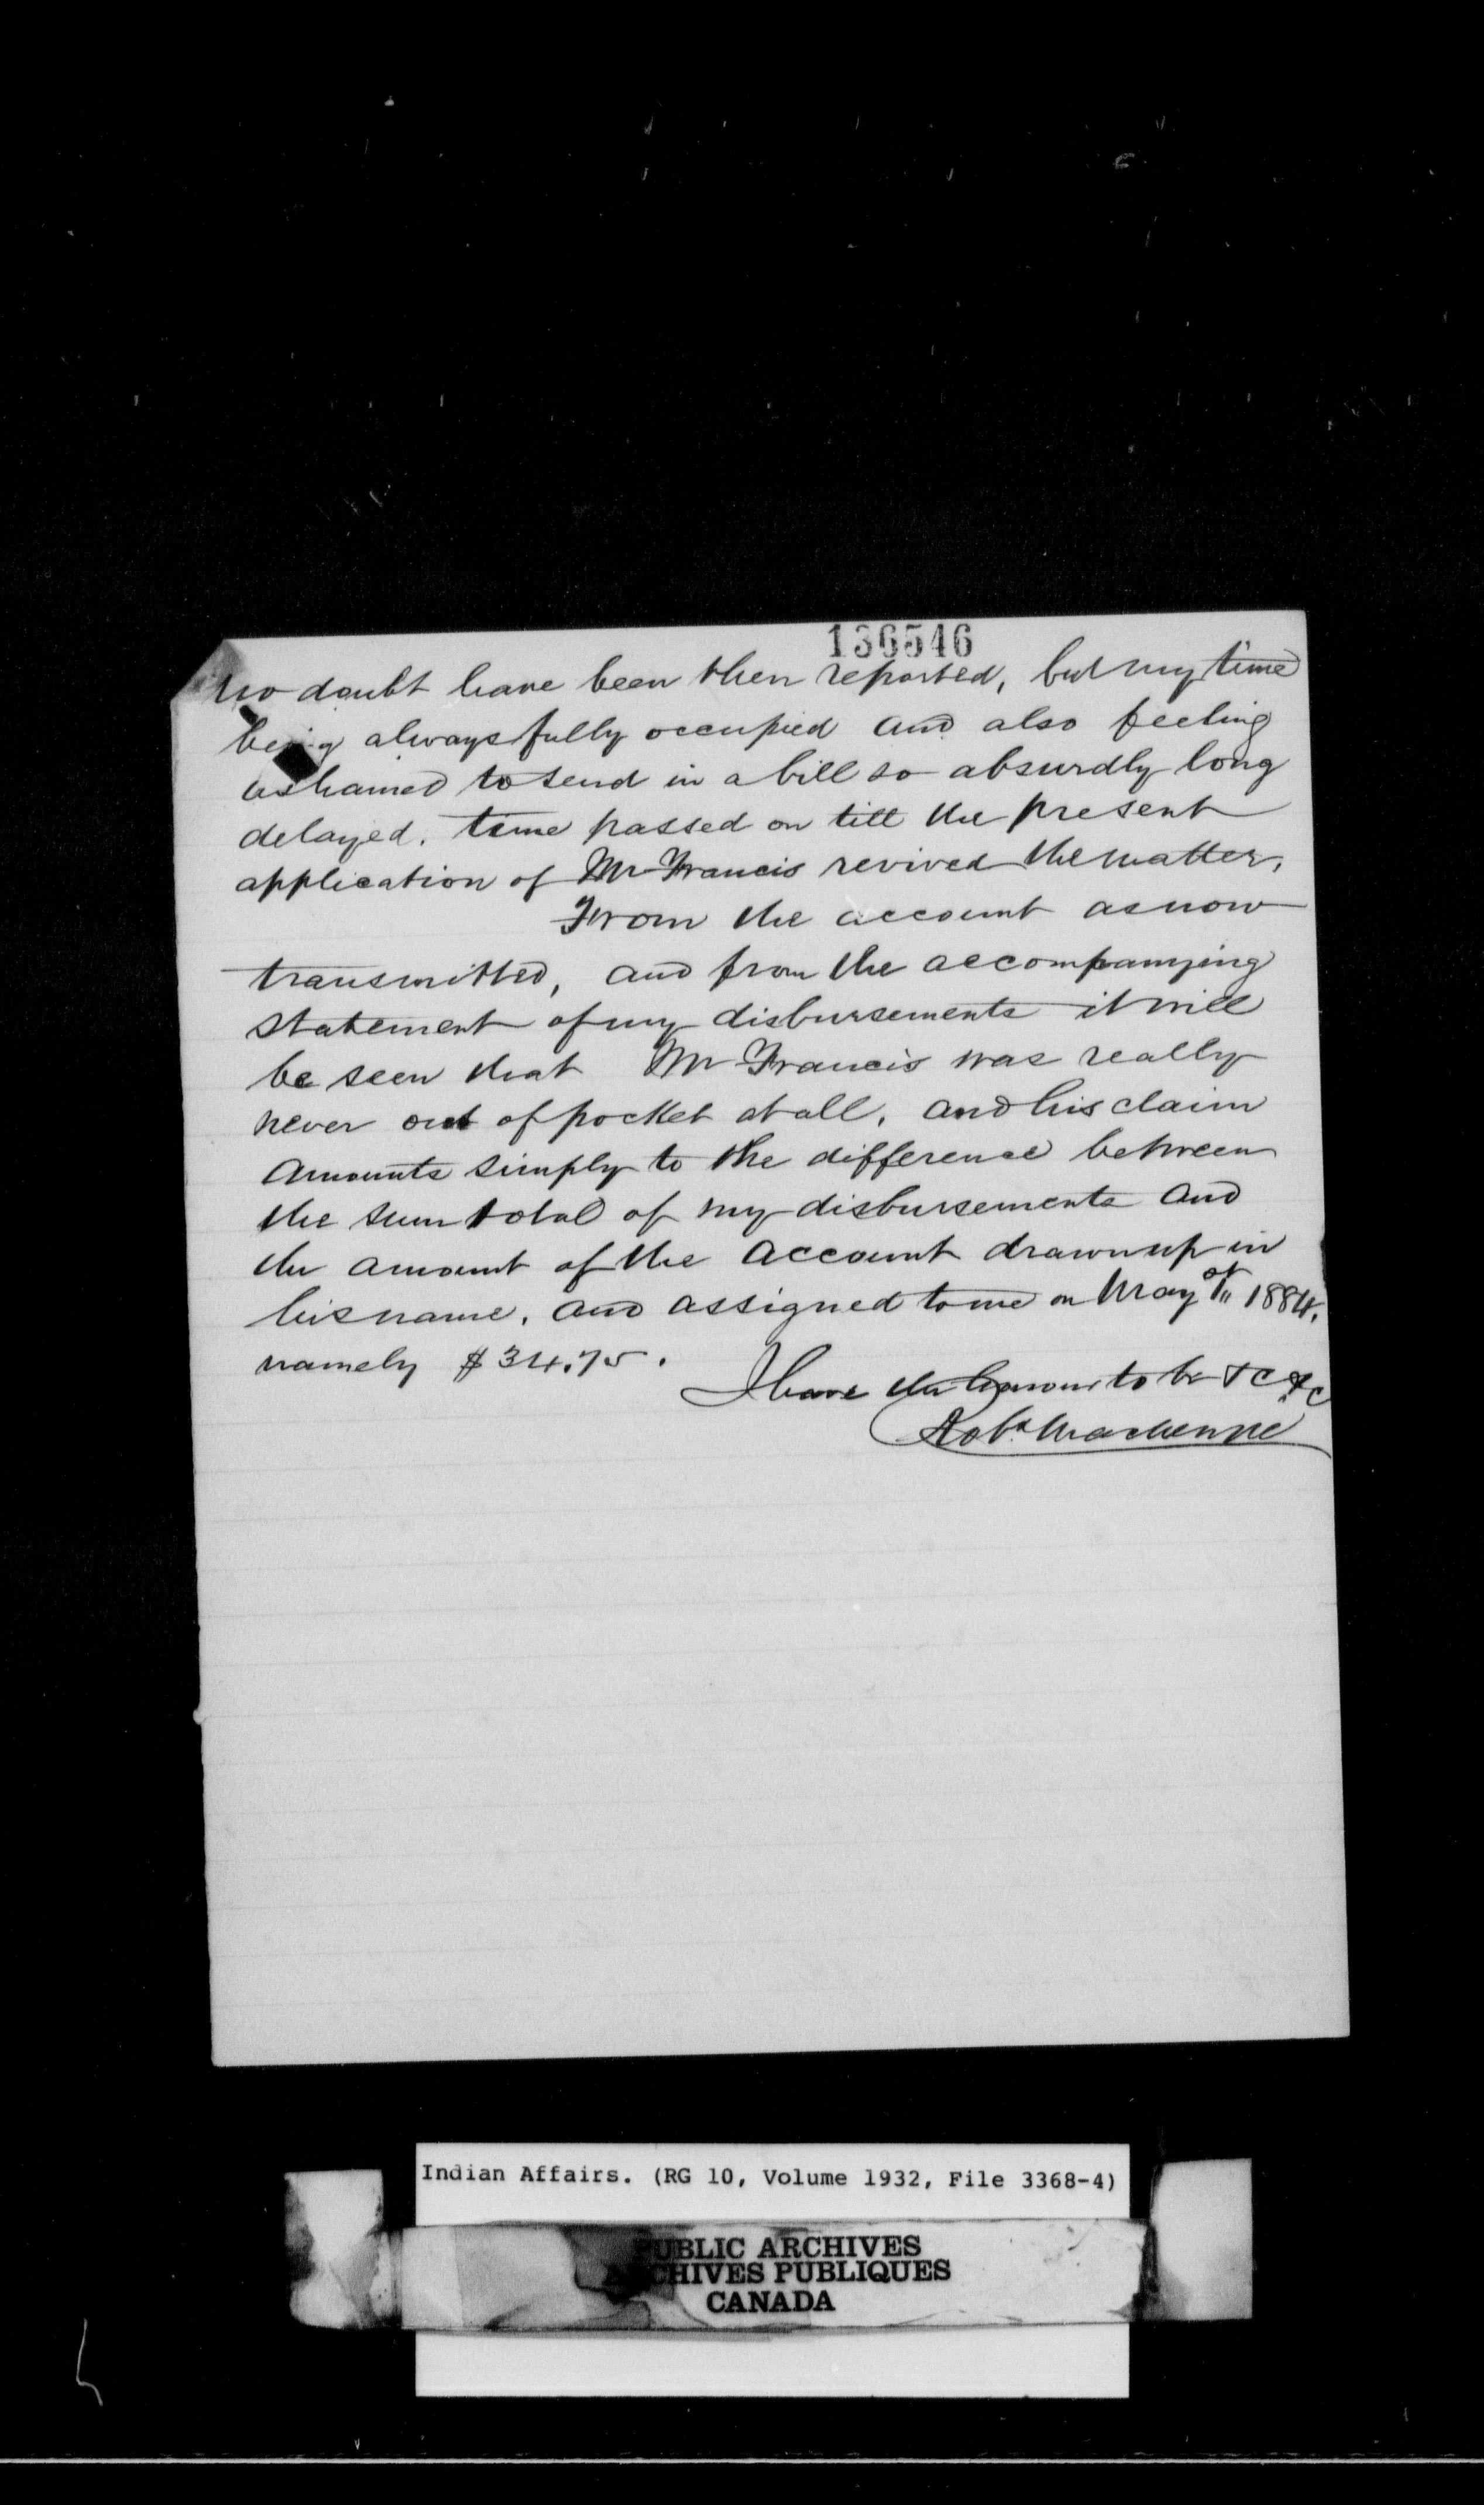 136546
no doubt have been then reported, but my time
being always fully occupied and also feeling
ashamed to send in a bill so absurdly long
delayed, time passed on till the present
application of Mr Francis revived the matter.
From the account as now
transmitted, and from the accompanying
statement of my disbursements it will
be seen that Mr Francis was really
never out of pocket at all, and his claim
amounts simply to the difference between
the sum total of my disbursements and
the amount of the account drawn up in
his name, and assigned to me on May 1st 1884,
namely $34.75.
I have the honour to be &c &c
Robt Mackenzie
Indian Affairs. (RG 10, Volume 1932, File 3368-4)
PUBLIC ARCHIVES
ARCHIVES PUBLIQUES
CANADA